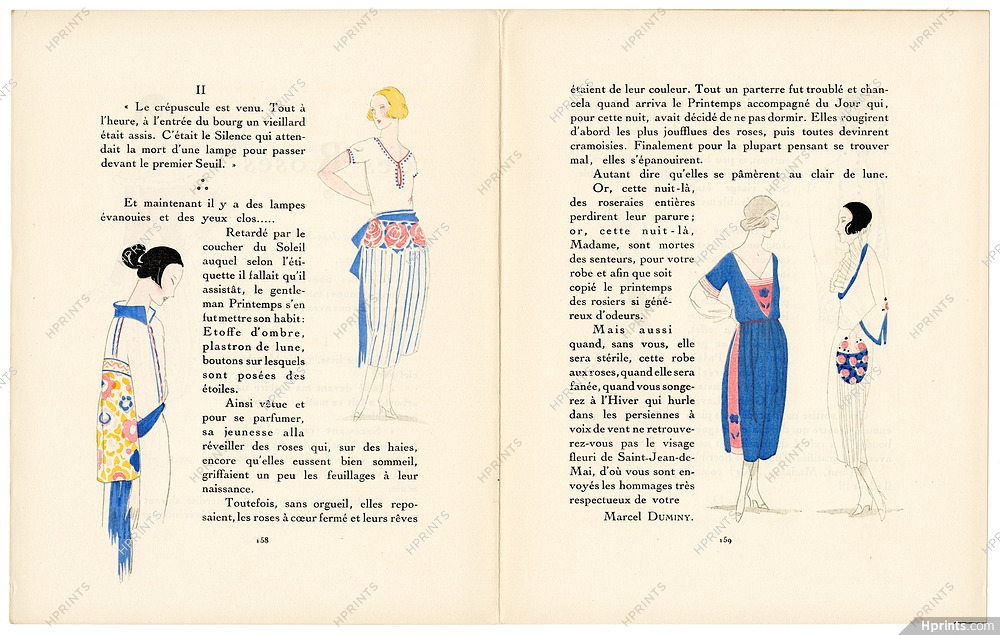 II
« Le crépuscule est venu. Tout à
l'heure, à l'entrée du bourg un vieillard
était assis. C'était le Silence qui atten-
dait la mort d'une lampe pour passer
devant le premier Seuil. »
Et maintenant il y a des lampes
évanouies et des yeux clos.....
Retardé par le
coucher du Soleil
auquel selon l'éti-
quette il fallait qu'il
assistât, le gentle-
man Printemps s'en
fut mettre son habit :
Etoffe d'ombre,
plastron de lune,
boutons sur lesquels
sont posées des
étoiles.
Ainsi vêtue et
pour se parfumer,
sa jeunesse alla
réveiller des roses qui, sur des haies,
encore qu'elles eussent bien sommeil,
griffaient un peu les feuillages à leur
naissance.
Toutefois, sans orgueil, elles repo-
saient, les roses à cœur fermé et leurs rêves
158
étaient de leur couleur. Tout un parterre fut troublé et chan-
cela quand arriva le Printemps accompagné du Jour qui,
pour cette nuit, avait décidé de ne pas dormir. Elles rougirent
d'abord les plus joufflues des roses, puis toutes devinrent
cramoisies. Finalement pour la plupart pensant se trouver
mal, elles s'épanouirent.
Autant dire qu'elles se pâmèrent au clair de lune.
Or, cette nuit-là,
des roseraies entières
perdirent leur parure ;
or, cette nuit-là,
Madame, sont mortes
des senteurs, pour votre
robe et afin que soit
copié le printemps
des rosiers si géné-
reux d'odeurs.
Mais aussi
quand, sans vous, elle
sera stérile, cette robe
aux roses, quand elle sera
fanée, quand vous songe-
rez à l'Hiver qui hurle
dans les persiennes à
voix de vent ne retrouve-
rez-vous pas le visage
fleuri de Saint-Jean-de-
Mai, d'où vous sont en-
voyés les hommages très
respectueux de votre
Marcel DUMINY.
159
HPRINTS
Hprints.com